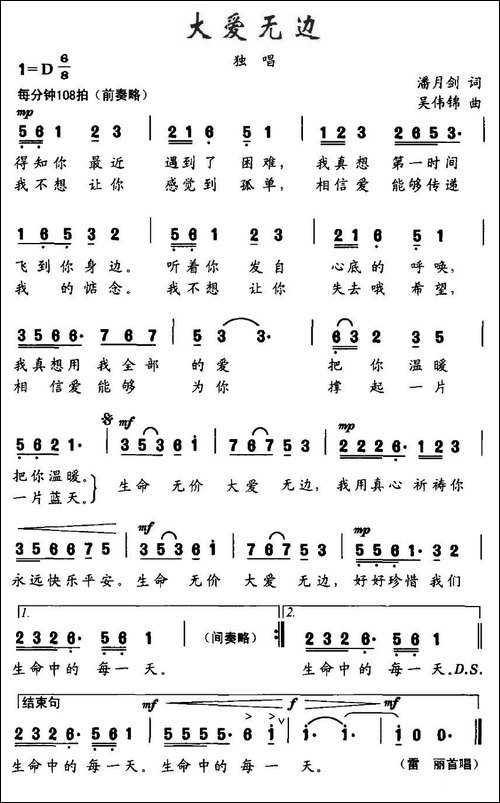 大爱无边
独 唱
1=D 6/8
潘月剑 词
每分钟108拍（前奏略）
吴伟锦 曲
mp
5 6 1 2 3 | 2 1 6 5 1 | 1 2 3 2 6 5 3 |
得知你 最近 遇到了 困难， 我真想 第一时间
我不想 让你 感觉到 孤单， 相信爱 能够传递
1 6 5 3 2 | 5 6 1 2 3 | 2 1 6 5 1 |
飞到你身边。 听着你 发自 心底的 呼唤，
我 的惦念。 我不想 让你 失去哦 希望，
3 5 6 6· 7 6 7 | 5 3 3· | 6 3 2 3 5 |
我真想用 我全部 的爱 把你温暖
相信爱能够 为你 撑起一片
mf mp
5 6 2 1· | 3 5 3 6 1 | 7 6 7 5 3 | 2 2 2 6· 1 2 3 |
把你温暖。
一片蓝天。
生命 无价 大爱 无边， 我用真心 祈祷你
mf mp
3 5 6 6 7 5 | 3 5 3 6 1 | 7 6 7 5 3 | 5 5 6 1· 3 2 |
永远快乐平安。 生命 无价 大爱 无边， 好好珍惜 我们
1. 2.
2 3 2 6· 5 6 1 | （间奏略） :| 2 3 2 6· 5 6 1 |
生命中的 每一天。 生命中的 每一天。D.S.
结束句 mf f mf
2 3 2 6· 5 6 1 | 5 5 5 5· 6 i | i· i· | i 0 0· |
生命中的 每一天。 生命中的 每一 天。 （雷 丽首唱）